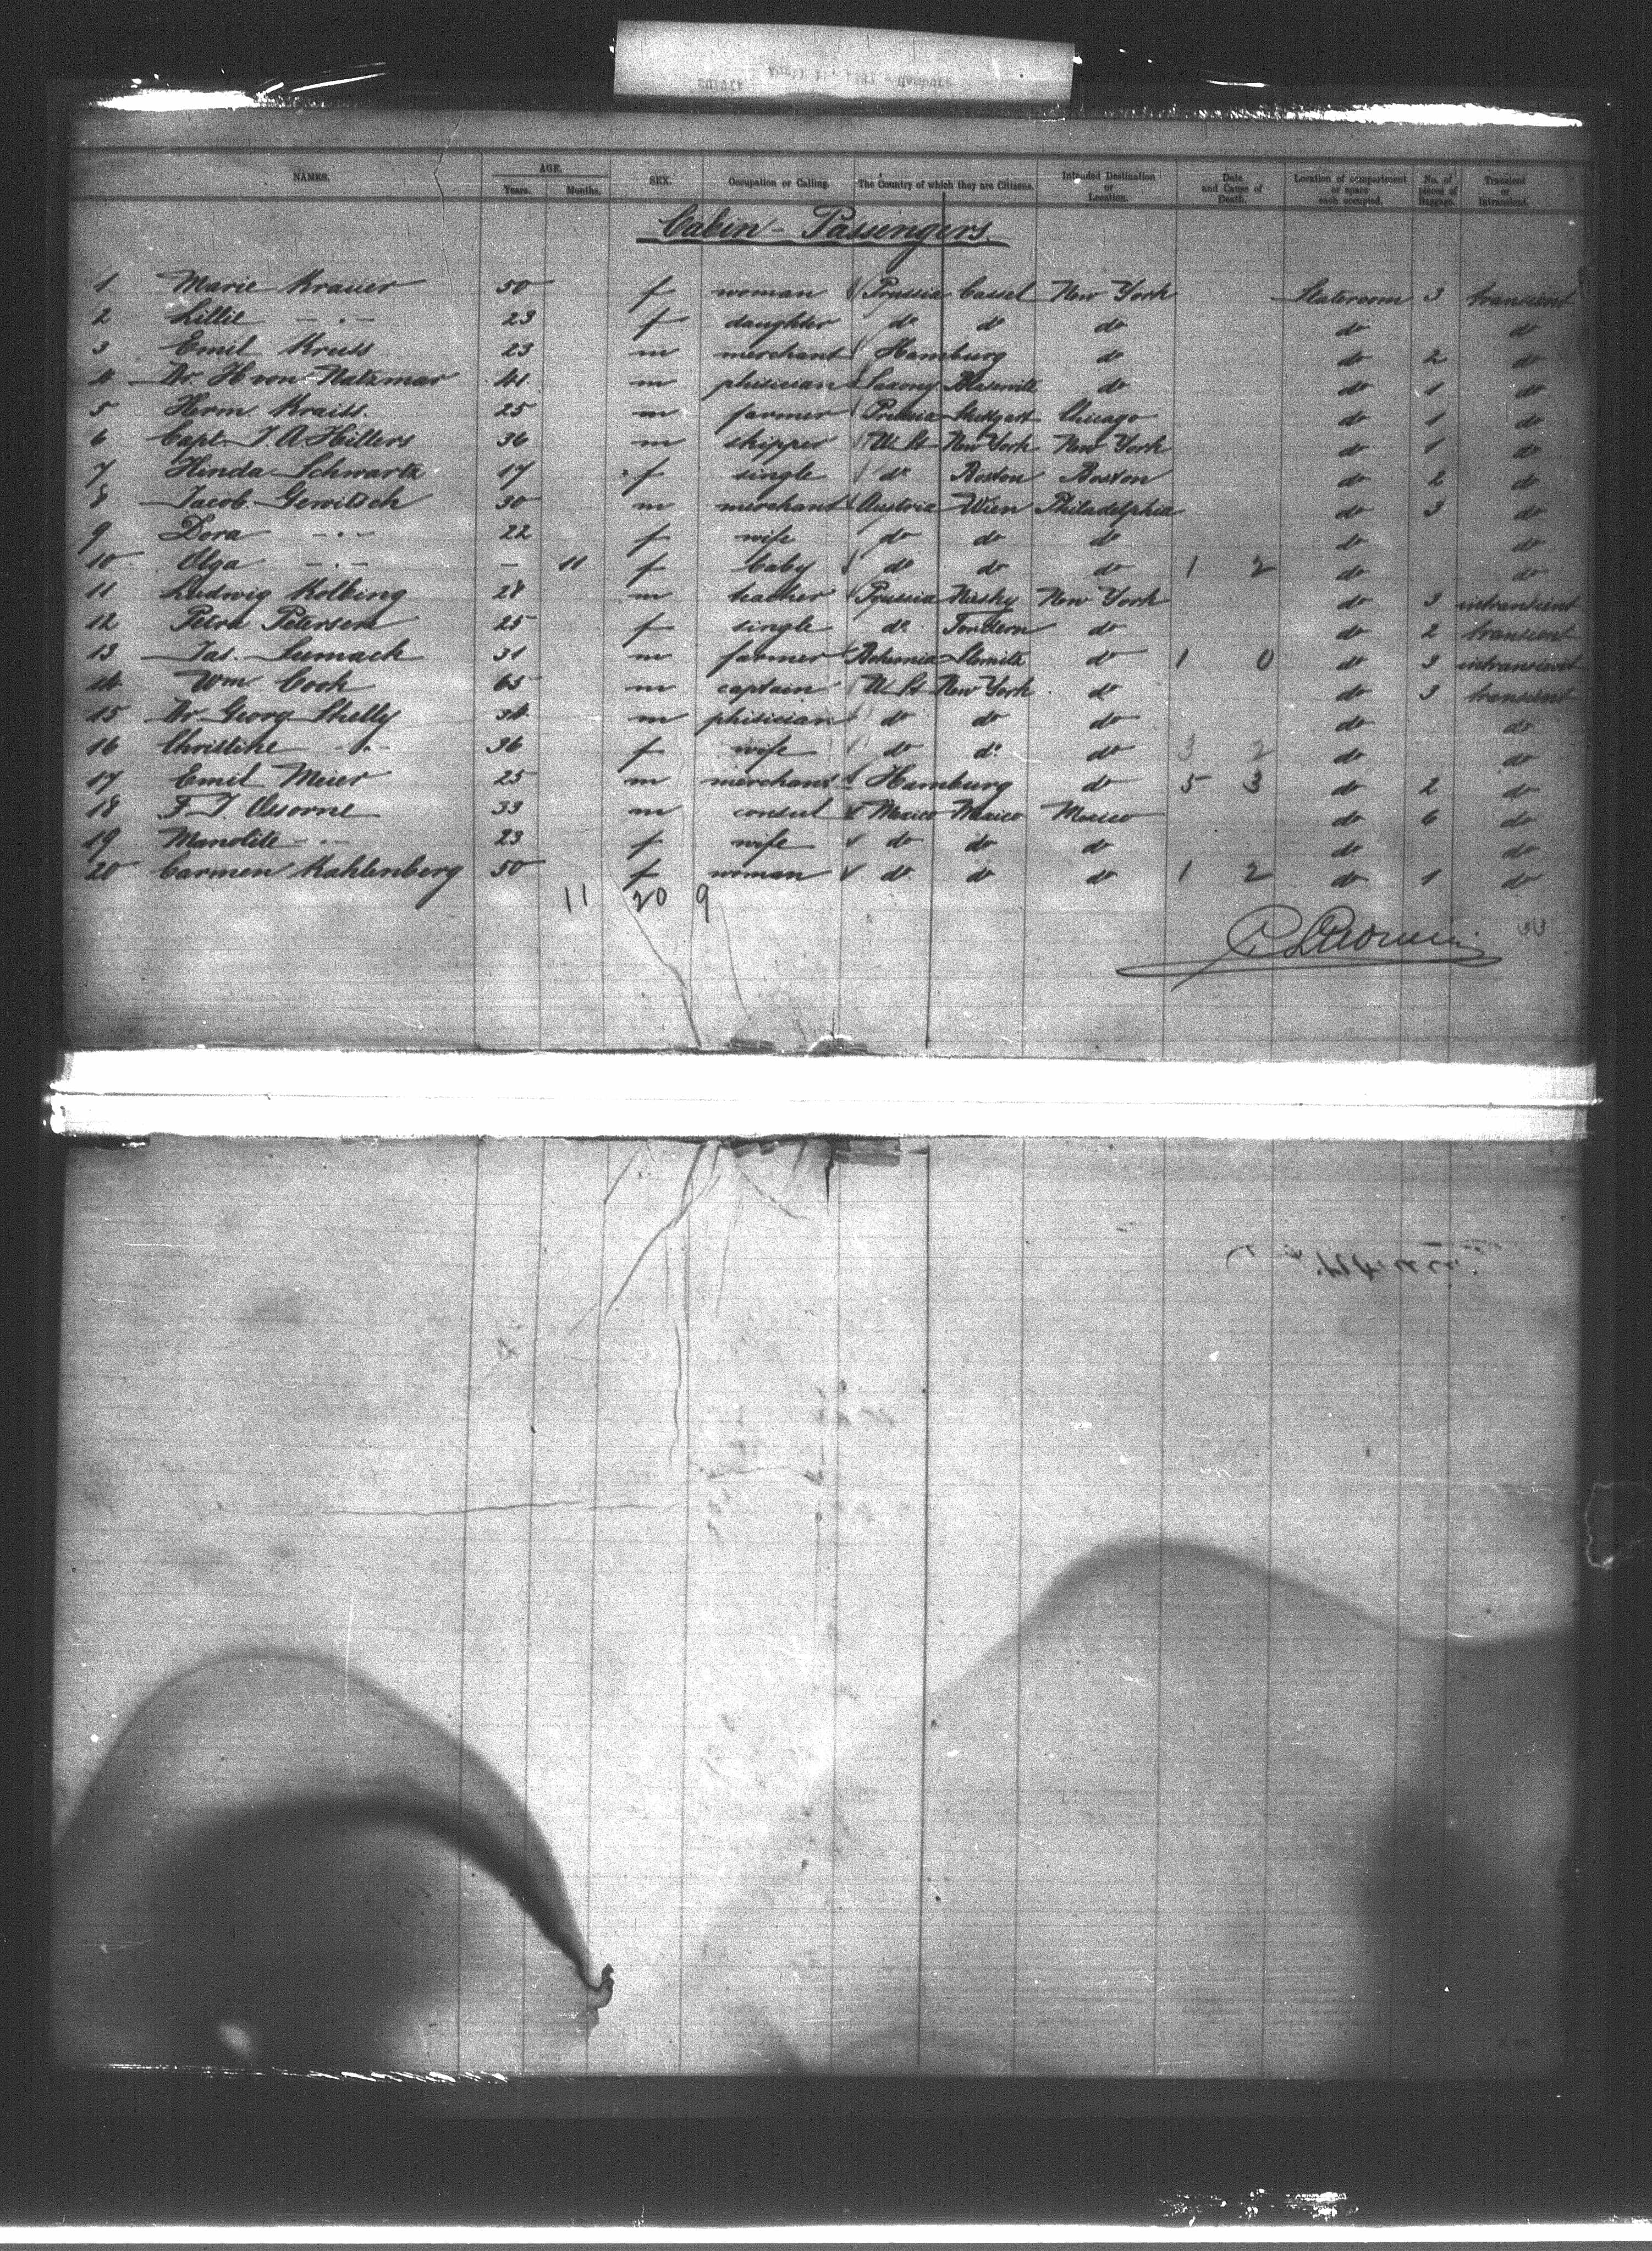 NAMES. AGE. Years. Months. SEX. Occupation or Calling. The Country of which they are Citizens. Intended Destination or Location. Date and Cause of Death. Location of compartment or space each occupied. No. of pieces of Baggage. Transient or Intransient.
Cabin - Passengers.
1 Marie Krauer 50 f woman Prussia Cassel New York Stateroom 3 transient
2 Lillie - . - 23 f daughter do do do do do
3 Emil Kruss 23 m merchant Hamburg do do 2 do
4 Dr H von Natzmar 41 m phisician Saxony Blasewitz do do 1 do
5 Herm Kraiss. 25 m farmer Prussia Stuttgart Chicago do 1 do
6 Capt. J. A. Hillers 36 m skipper U St New York New York do 1 do
7 Hinda Schwartz 17 f single do Boston Boston do 2 do
8 Jacob Gewitsch 30 m merchant Austria Wien Philadelphia do 3 do
9 Dora - . - 22 f wife do do do do do
10 Olga - . - - 11 f baby do do do 1 2 do do
11 Ludwig Kolbing 28 m teacher Prussia Nisky New York do 3 intransient
12 Petra Petersen 25 f single do Tondern do do 2 transient
13 Jas. Sumach 31 m farmer Bohemia do 1 0 do 3 intransient
14 Wm Cook 65 m captain U St New York do do 3 transient
15 Dr Georg Shelly 34 m phisician do do do do do
16 Christine - . - 36 f wife do do do 3 2 do do
17 Emil Meier 25 m merchant Hamburg do 5 3 do 2 do
18 F. J. Ossorne 33 m consul Mexico Mexico Mexico do 6 do
19 Manolite - . - 23 f wife do do do do do
20 Carmen Kahlenberg 50 f woman do do do 1 2 do 1 do
11 20 9
33